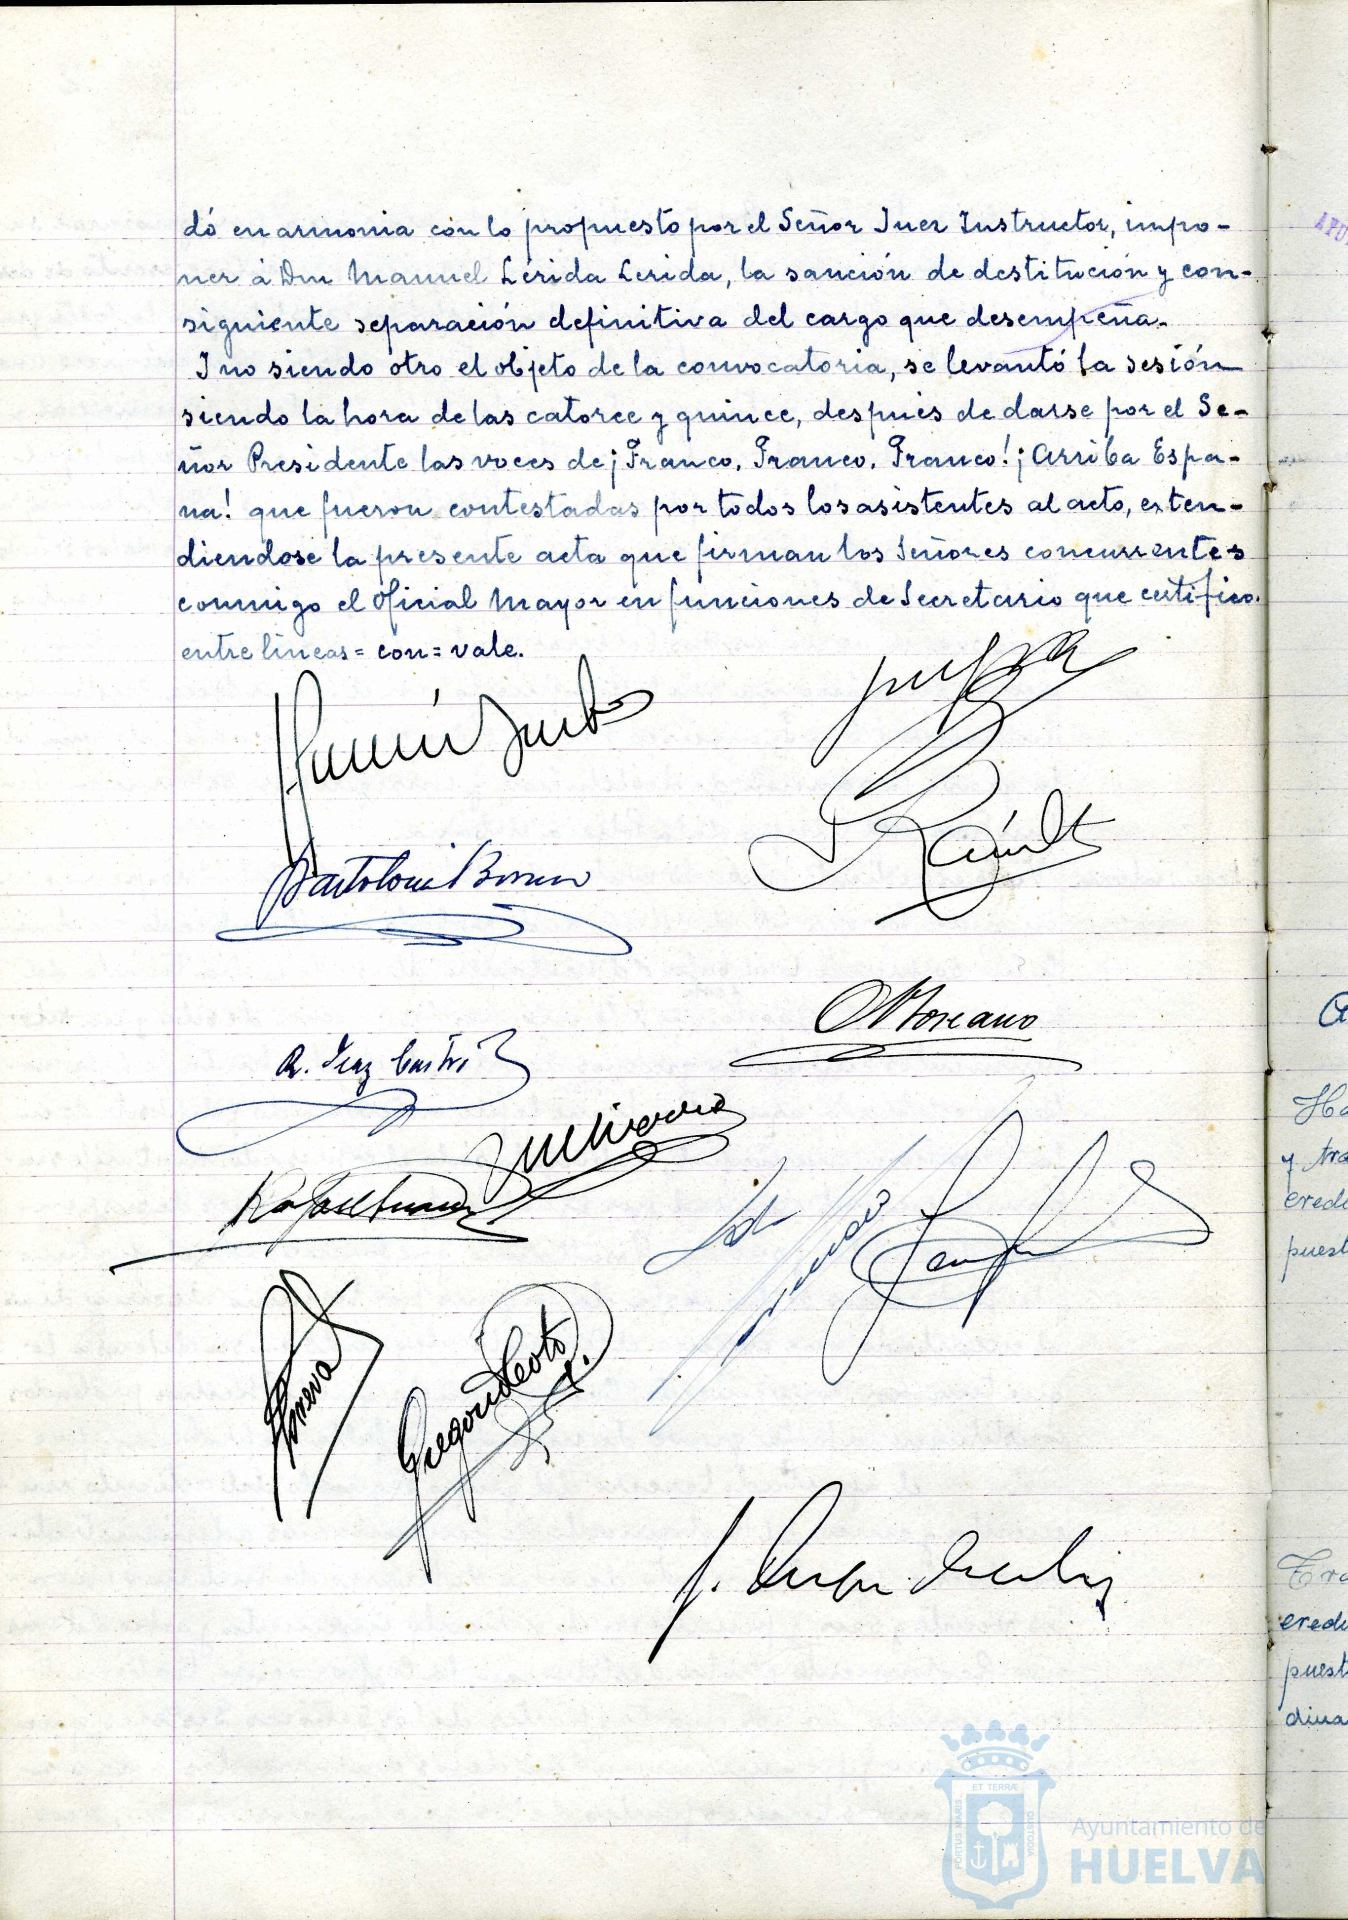 dó en armonia con lo propuesto por el Señor Juez Instructor, impo-
ner á Don Manuel Lérida Lerida, la sanción de destitución y con-
siguiente separación definitiva del cargo que desempeña.
Y no siendo otro el objeto de la convocatoria, se levantó la sesión
siendo la hora de las catorce y quince, después de darse por el Se-
ñor Presidente las voces de ¡Franco, Franco, Franco! ¡Arriba Espa-
na! que fueron contestadas por todos los asistentes al acto, exten-
diendose la presente acta que firman los Señores concurrentes
conmigo el Oficial Mayor en funciones de Secretario que certifico.
entre lineas = con = vale.
Bartolomé
R. Diaz
Moreano
Rafael
Gregorio
ET TERRÆ
PORTUS MARIS
CUSTODIA
Ayuntamiento de
HUELVA